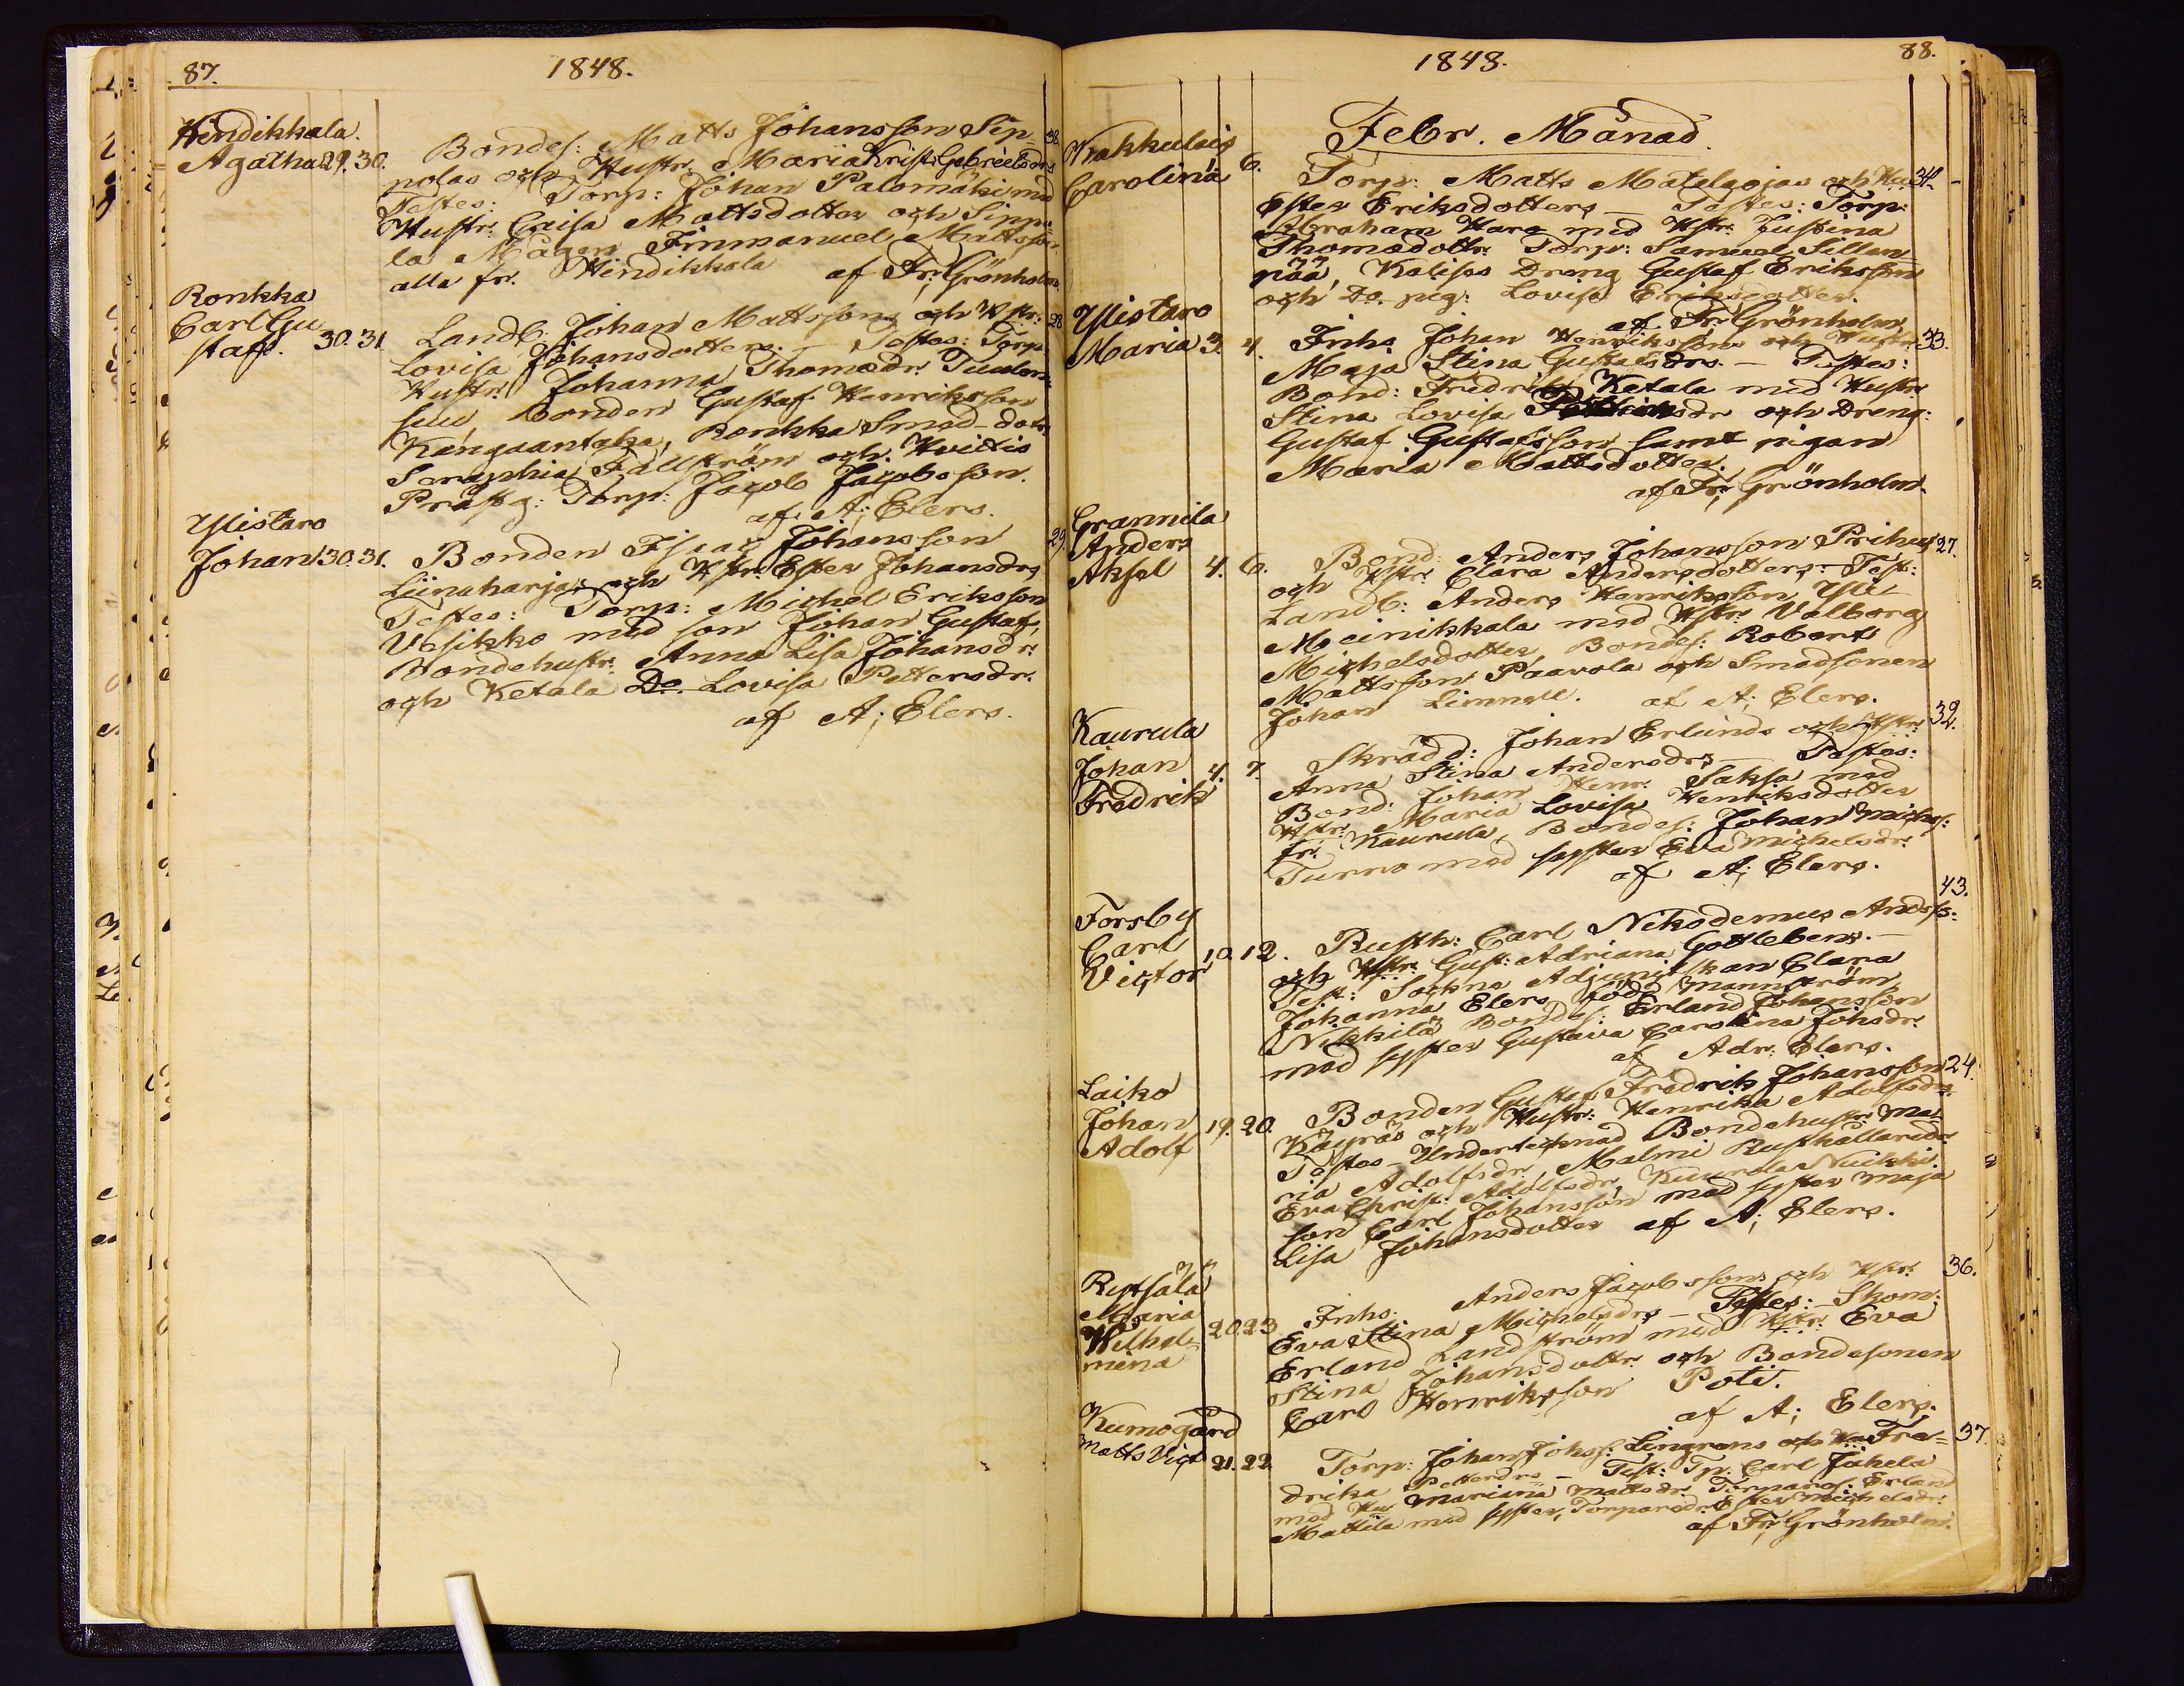 87. 1848.
Hindikkala.
Agatha 29. 30. Bondes: Matts Johansson Sip- 38.
polas och Hustr. Maria Krist: Gabrielsdrs
Testes: Torp: Johan Palomäki med
Hustr. Caisa Mattsdotter och Sippo-
la Mågen Immanuel Mattsson
alla fr. Hindikkala af Fr: Grönholm.
Ronkka
Carl Gu
staf. 30. 31. Landb: Johan Mattssons och Hstr: 28
Lovisa Johansdotters. – Testes: Torp.
Hustr: Johanna Thomædr. Tuulen-
suu, bonden Gustaf Henriksson
Kangaantaka, Ronkka Smed-dotr
Seraphia Fällström och Hvittis
Prästg: Torp: Jacob Jacobsson.
af A; Elers.
Ylistaro
Johan 30. 31. Bonden Isaac Johansson 29.
Liinaharjas och Hstr: Ester Johansdrs
Testes: Torp: Michel Eriksson
Vesikko med son Johan Gustaf,
Bondehustr: Anna Lisa Johansdr:
och Ketala Do. Lovisa Pettersdr.
af A; Elers.
1848. 88.
Febr. Månad.
Kakkulais
Carolina 6. Torp: Matts Matelaojas och Hu 34.
Ester Eriksdotters – Testes: Torp:
Abraham Hara med Hstr: Justina
Thomædottr. Torp: Samuel Sillan-
pää, Kalisos Dreng Gustaf Eriksson
och Do. pig: Lovisa Eriksdotter.
af Fr: Grönholm
Ylistaro
Maria 3. 4. Inhs Johan Henrikssons och Hustr. 33.
Maja Stina Gustafsdrs. – Testes:
Bond: Fredrik Ketala med Hustr
Stina Lovisa dr och Dreng:
Gustaf Gustafsson samt pigan
Maria Mattsdotter.
af Fr; Grönholm.
Grannila
Anders
Aksel 4. 6. Bond: Anders Johansson Prihus 27.
och Hstr: Clara Andersdotters – Test:
Landb: Anders Henriksson Yli-
Meinikkala med Hstr: Valborg
Michelsdotter, Bondes: Robert
Mattsson Paavola och Smedsonen
Johan Linnell. af A; Elers.
Kaurula
Johan 4. 7.
Fredrik Skrädd: Johan Erlunds och Hstr: 32.
Anna Stina Andersdrs – Testes:
Bond: Johan Henr: Saksa med
Hstr: Maria Lovisa Henriksdotter
fr. Kaurula, Bondes: Johan Michs:
Turro med syster Eva Michelsdr:
af A; Elers.
Forsby 43.
Carl 10. 12. Rusth: Carl Nikodemus Andss:
Victor och Hstr: Gust: Adriana Gottlebens. –
Test: Sockne Adjunctskan Clara
Johanna Elers, född Mannström,
Nikkilä Bondes: Erland Johansson
med syster Gustava Carolina Johsdr.
af Adr. Elers.
Laiko
Johan 19. 20. Bonden Gustaf Fredrik Johansson 24.
Adolf Käyräs och Hustr: Henrika Adolfsdrs.
Testes – Undertecknad Bondehustr: Ma-
ria Adolfsdr, Malmi Rusthållaredr
Eva Christ: Adolfsdr, Kuurola Nuikki
son Carl Johansson med syster Maja
Lisa Johansdotter af A; Elers.
Rutsälä 36.
Maria 20. 23. Inhs. Anders Jacobssons och Hstr:
Wilhel-
mina Eva Stina Michelsdrs – Testes: – Skom:
Erland Landström med Hstr: Eva
Stina Johansdottr. och Bondesonen
Carl Henriksson Poti.
af A; Elers.
Kumogård
Matts Vict 21. 22. Torp: Johan Johss: Lingrens och Hu Fre- 37.
drika Pettersdrs – Test: Tp: Carl Juhela
med Hu Mariana Mattsdr, Torpares: Erland
Mattila med syster, Torparedr Ester Michelsdr:
af Fr: Grönholm.